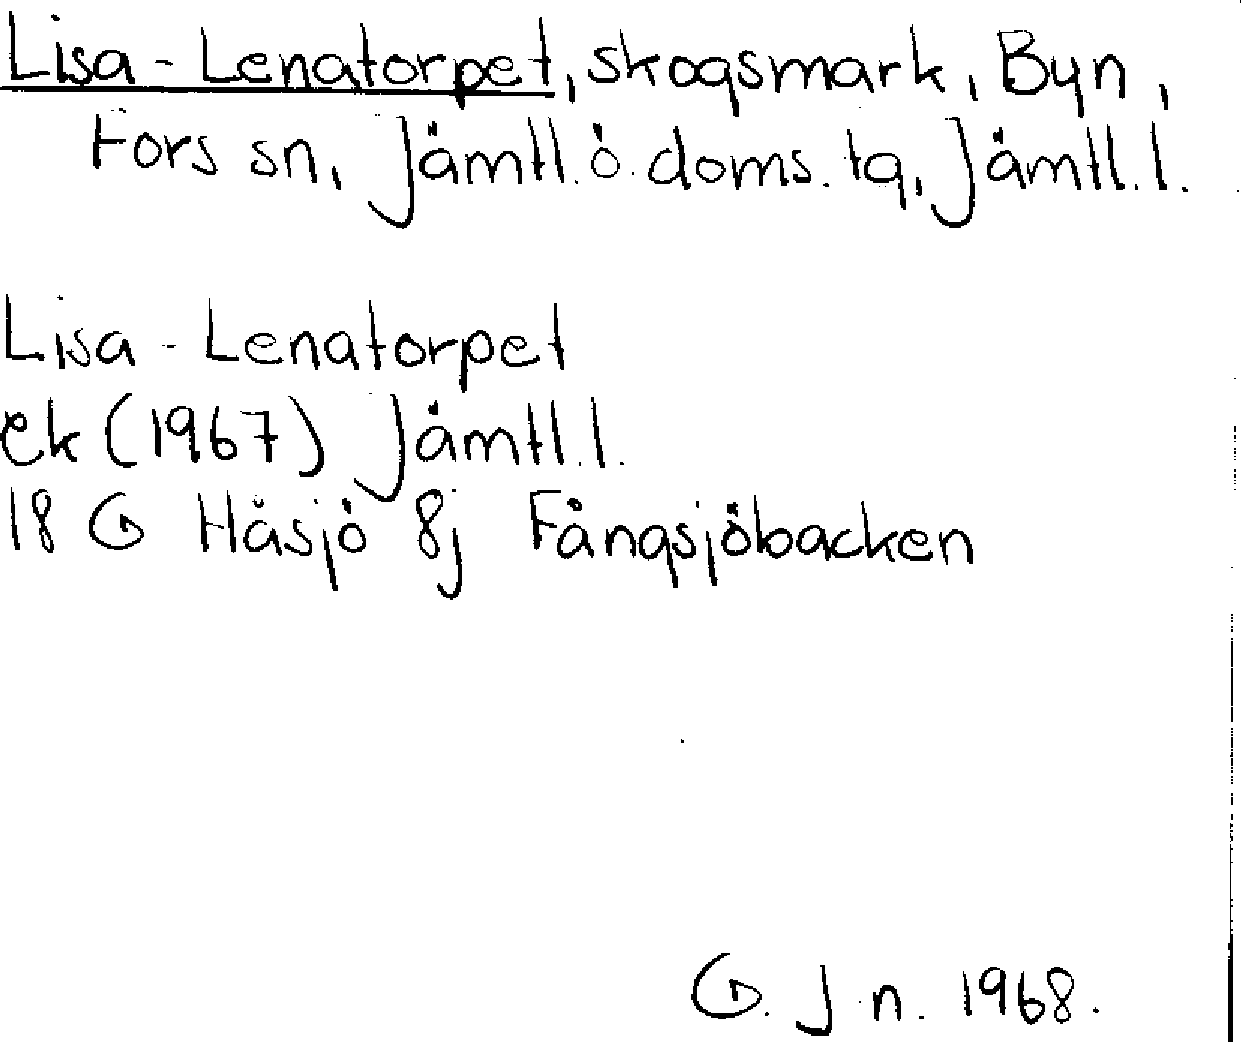 Lisa-Lenatorpet, skogsmark, Byn,
Fors sn, Jämtl. ö. doms. tg, Jämtl. l.
Lisa-Lenatorpet
ek (1967) Jämtl. l.
18 G Håsjö 8j Fångsjöbacken
G. J-n. 1968.